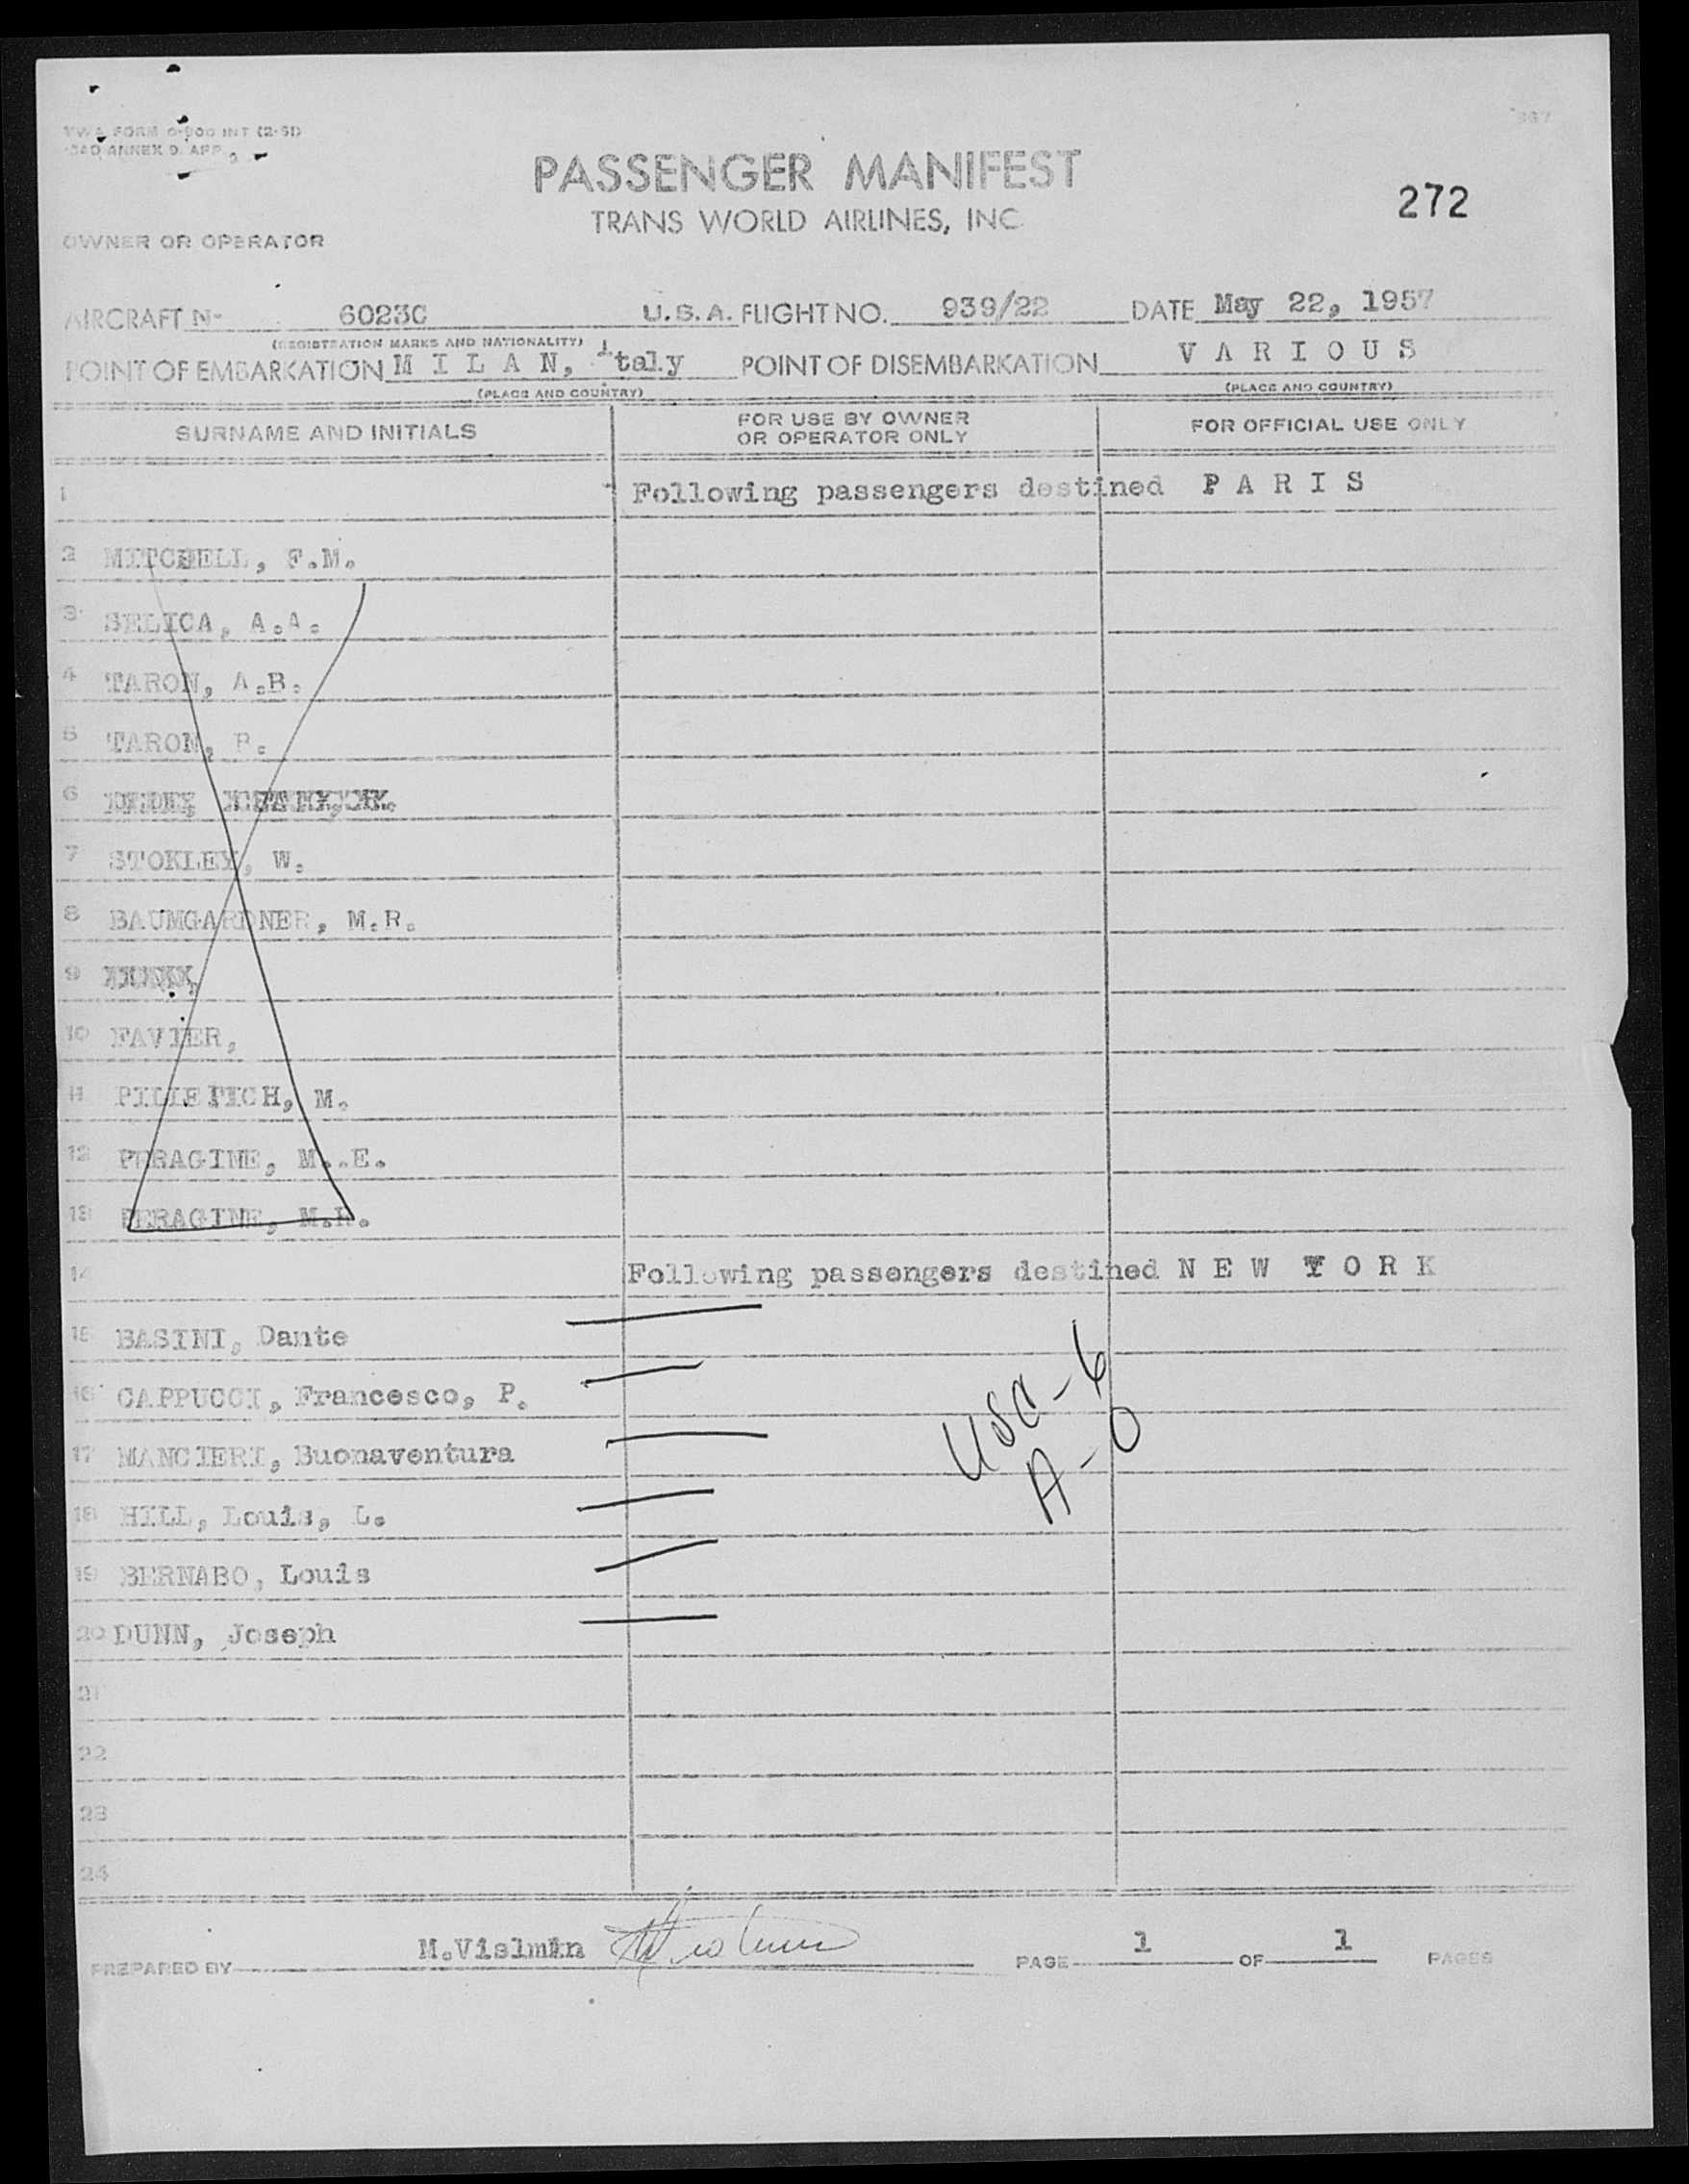 TWA FORM O-900 INT (2-51)
ANNEX 9, APP.
PASSENGER MANIFEST
272
TRANS WORLD AIRLINES, INC
OWNER OR OPERATOR
AIRCRAFT N- 6023C U.S.A. FLIGHT NO. 939/22 DATE May 22, 1957
(REGISTRATION MARKS AND NATIONALITY)
POINT OF EMBARKATION M I L A N, Italy POINT OF DISEMBARKATION V A R I O U S
(PLACE AND COUNTRY) (PLACE AND COUNTRY)
SURNAME AND INITIALS FOR USE BY OWNER OR OPERATOR ONLY FOR OFFICIAL USE ONLY
1 Following passengers destined P A R I S
2 MITCHELL, F.M.
3 SELICA, A.A.
4 TARON, A.B.
5 TARON, P.
6
7 STOKLEY, W.
8 BAUMGARDNER, M.R.
9
10 FAVIER,
11 PILIETICH, M.
12 PERAGINE, M..E.
13 PERAGINE, M.R.
14 Following passengers destined N E W Y O R K
15 BASINI, Dante
16 CAPPUCCI, Francesco, P.
17 MANCIERI, Buonaventura
18 HILL, Louis, L.
19 BERNABO, Louis
20 DUNN, Joseph
USC - 6
A - 0
21
22
23
24
PREPARED BY M.Vislmin PAGE 1 OF 1 PAGES